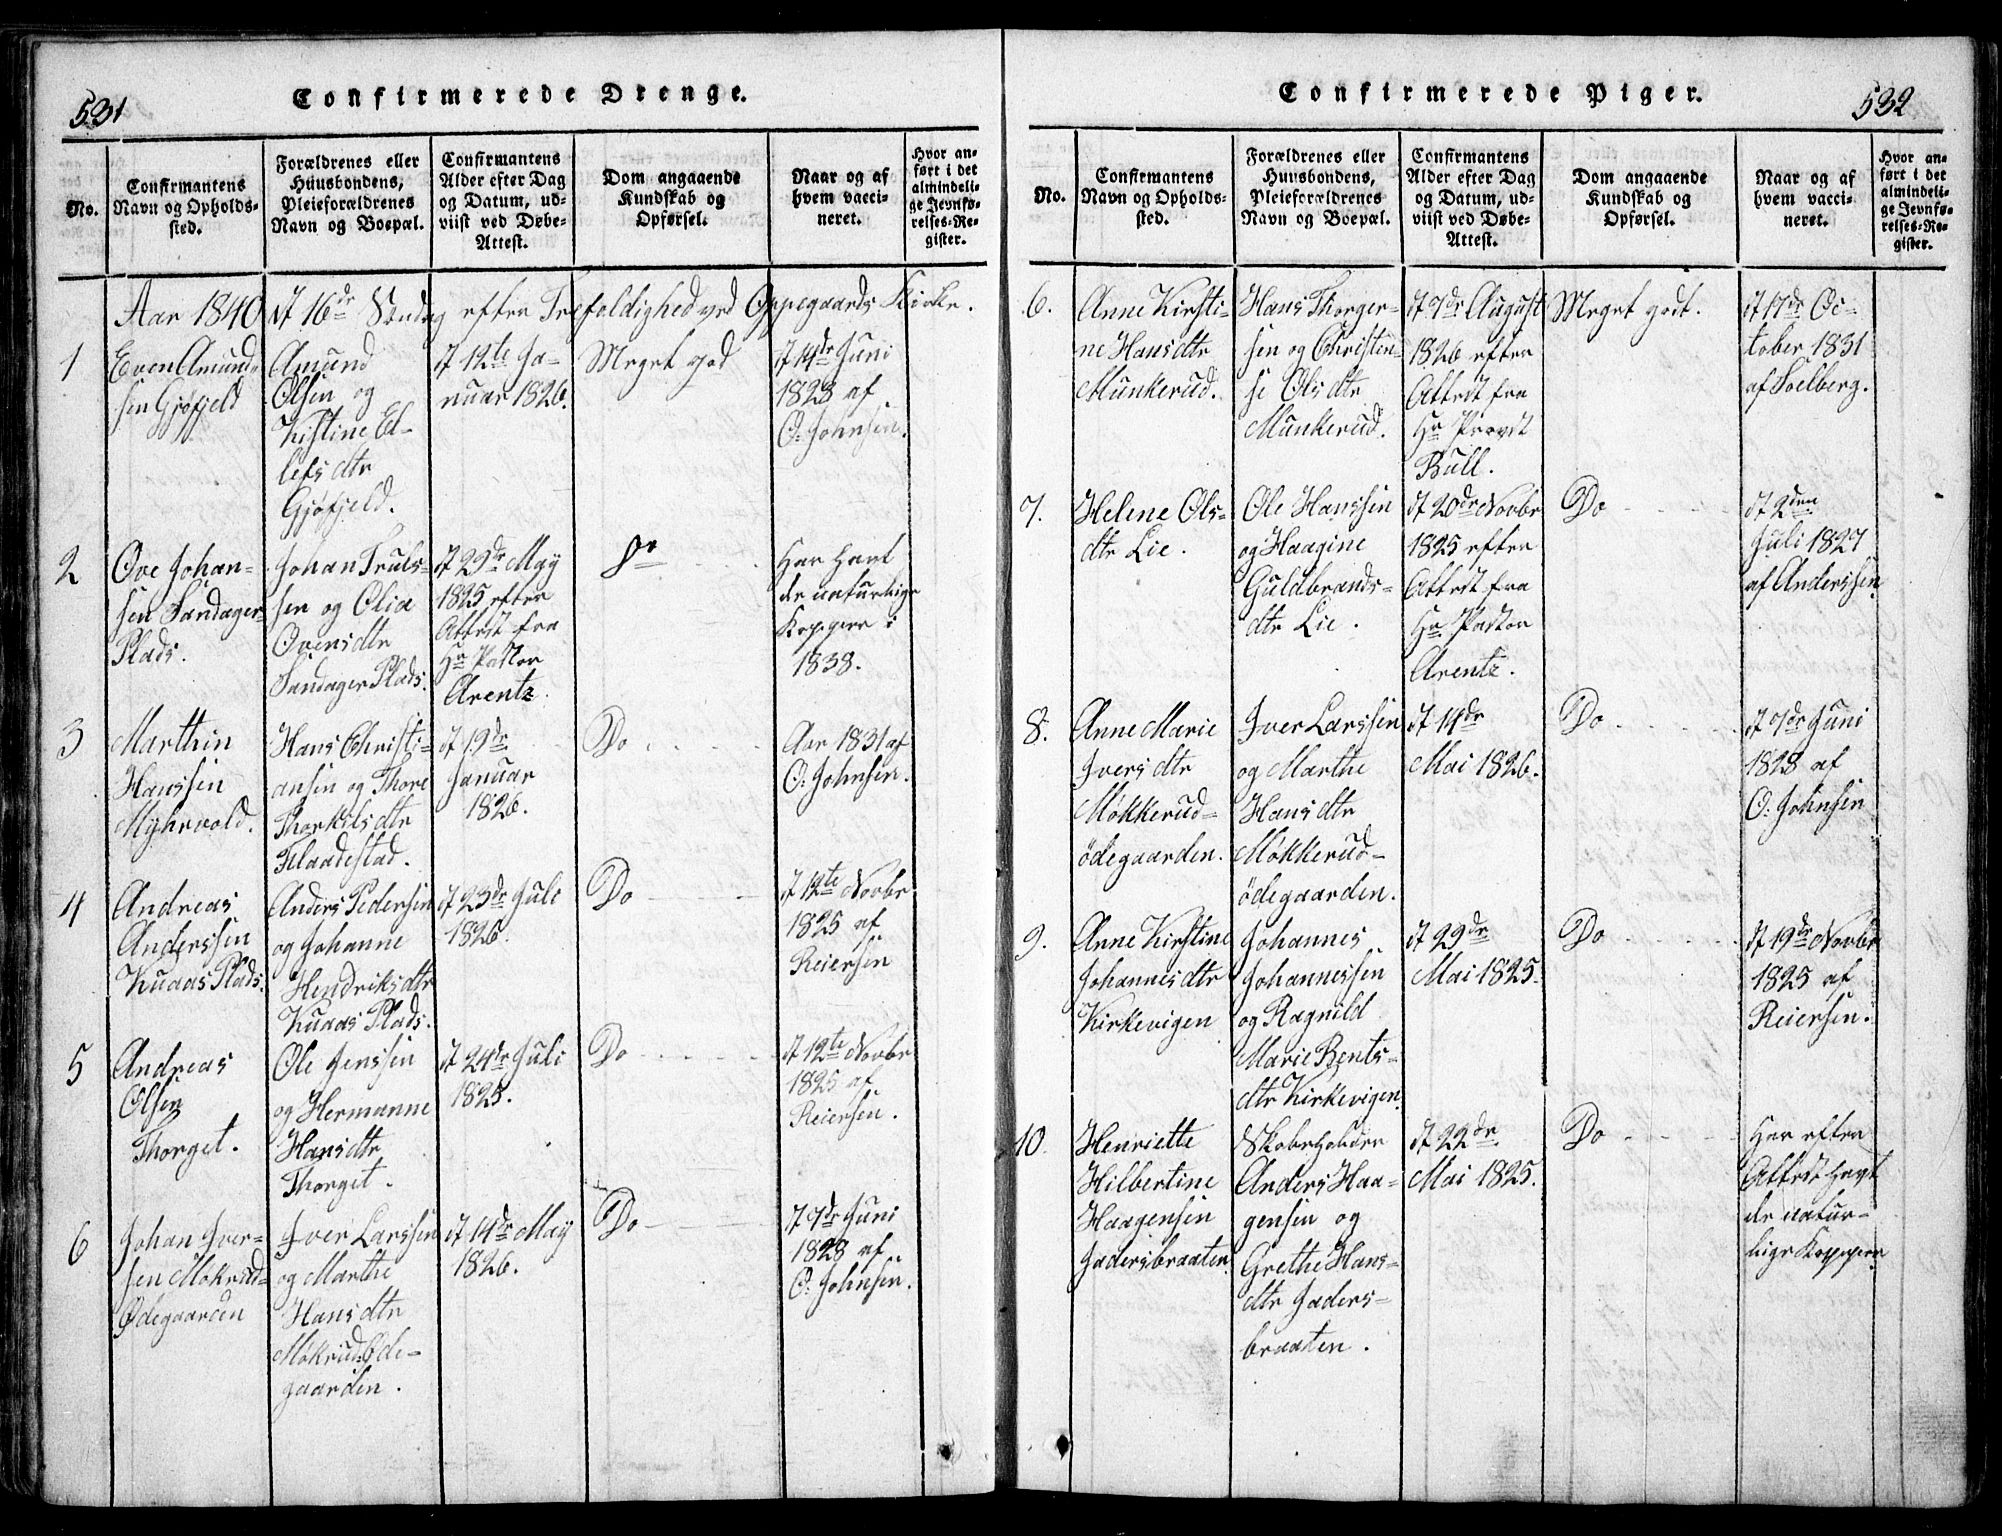 531
Confirmerede Drenge.
No.
Confirmantens
Navn og Opholds-
sted.
Forældrenes eller
Huusbondens,
Pleieforældrenes
Navn og Boepæl.
Confirmantens
Alder efter Dag
og Datum, ud-
viist ved Døbe-
Attest.
Dom angaaende
Kundskab og
Opførsel.
Naar og af
hvem vacci-
neret.
Hvor an-
ført i det
almindeli-
ge Jevnfø-
relses-Re-
gister.
Aar 1840 d 16de Søndag efter Trefoldighed ved Oppegaards Kirke.
1
Even Amund-
sen Gjøfjeld
Amund
Olsen og
Kistine El-
lefsdtr
Gjøfjeld.
d 12te Ja-
nuar 1826.
Meget god
d 14de Juni
1828 af
O. Johnsen.
2
Ove Johan-
sen Sandager
Plads.
Johan Truls-
sen og Olia
Ovensdtr
Sandager Plads.
d 29de May
1825 efter
Attest fra
Hr Pastor
Arentz.
Do
Har havt
de naturlige
Kopper i
1838.
3
Marthin
Hanssen
Myhrvold.
Hans Christi-
ansen og Thore
Thorkilsdtr
Flaadestad.
d 19de
Januar
1826.
Do
Aar 1831 af
O. Johnsen.
4
Andreas
Anderssen
Kuaas Plads.
Anders Pedersen
og Johanne
Hendriksdtr
Kuaas Plads.
d 23de Juli
1826.
Do
d 12te Novbr
1825 af
Reiersen
5
Andreas
Olsen
Thorget.
Ole Jenssen
og Hermanne
Hansdtr
Thorget.
d 24de Juli
1825.
Do
d 12te Novbr
1825 af
Reiersen.
6
Johan Iver-
sen Møkrud-
Ødegaarden
Iver Larssen
og Marthe
Hansdtr
Møkrudøde-
gaarden.
d 14de May
1826.
Do
d 7de Juni
1828 af
O. Johnsen.
Confirmerede Piger.
532
No.
Confirmantens
Navn og Opholds-
sted.
Forældrenes eller
Huusbondens,
Pleieforældrenes
Navn og Boepæl.
Confirmantens
Alder efter Dag
og Datum, ud-
viist ved Døbe-
Attest.
Dom angaaende
Kundskab og
Opførsel.
Naar og af
hvem vacci-
neret.
Hvor an-
ført i det
almindeli-
ge Jevnfø-
relses-Re-
gister.
6.
Anne Kirsti-
ne Hansdtr
Munkerud.
Hans Thorger-
sen og Christen-
se Olsdtr
Munkerud.
d 7de August
1826 efter
Attest fra
Hr Provst
Bull.
Meget godt.
d 17de Oc-
tober 1831
af Solberg.
7.
Helene Ols-
dtr Lie.
Ole Hanssen
og Haagine
Guldbrands-
dtr Lie.
d 20de Novbr
1825 efter
Attest fra
Hr Pastor
Arentz.
Do
d 2den
Juli 1827
af Anderssen
8.
Anne Marie
Iversdtr
Møkkerud-
ödegaarden.
Iver Larssen
og Marthe
Hansdtr
Møkkerud-
ödegaarden.
d 14de
Mai 1826.
Do
d 7de Juni
1828 af
O. Johnsen
9.
Anne Kirstine
Johannesdtr
Kirkevigen
Johannes
Johannessen
og Ragnild
Marie Bents-
dtr Kirkevigen.
d 29de
Mai 1825.
Do
d 19de Novbr
1825 af
Reiersen.
10.
Henriette
Hilbertine
Haagensen
Jadersbraaten
Skoleholder
Anders Haa-
gensen og
Grethe Hans-
dtr Jaders-
braaten.
d 22de
Mai 1825.
Do
Har efter
Attest havt
de natur-
lige Kopper